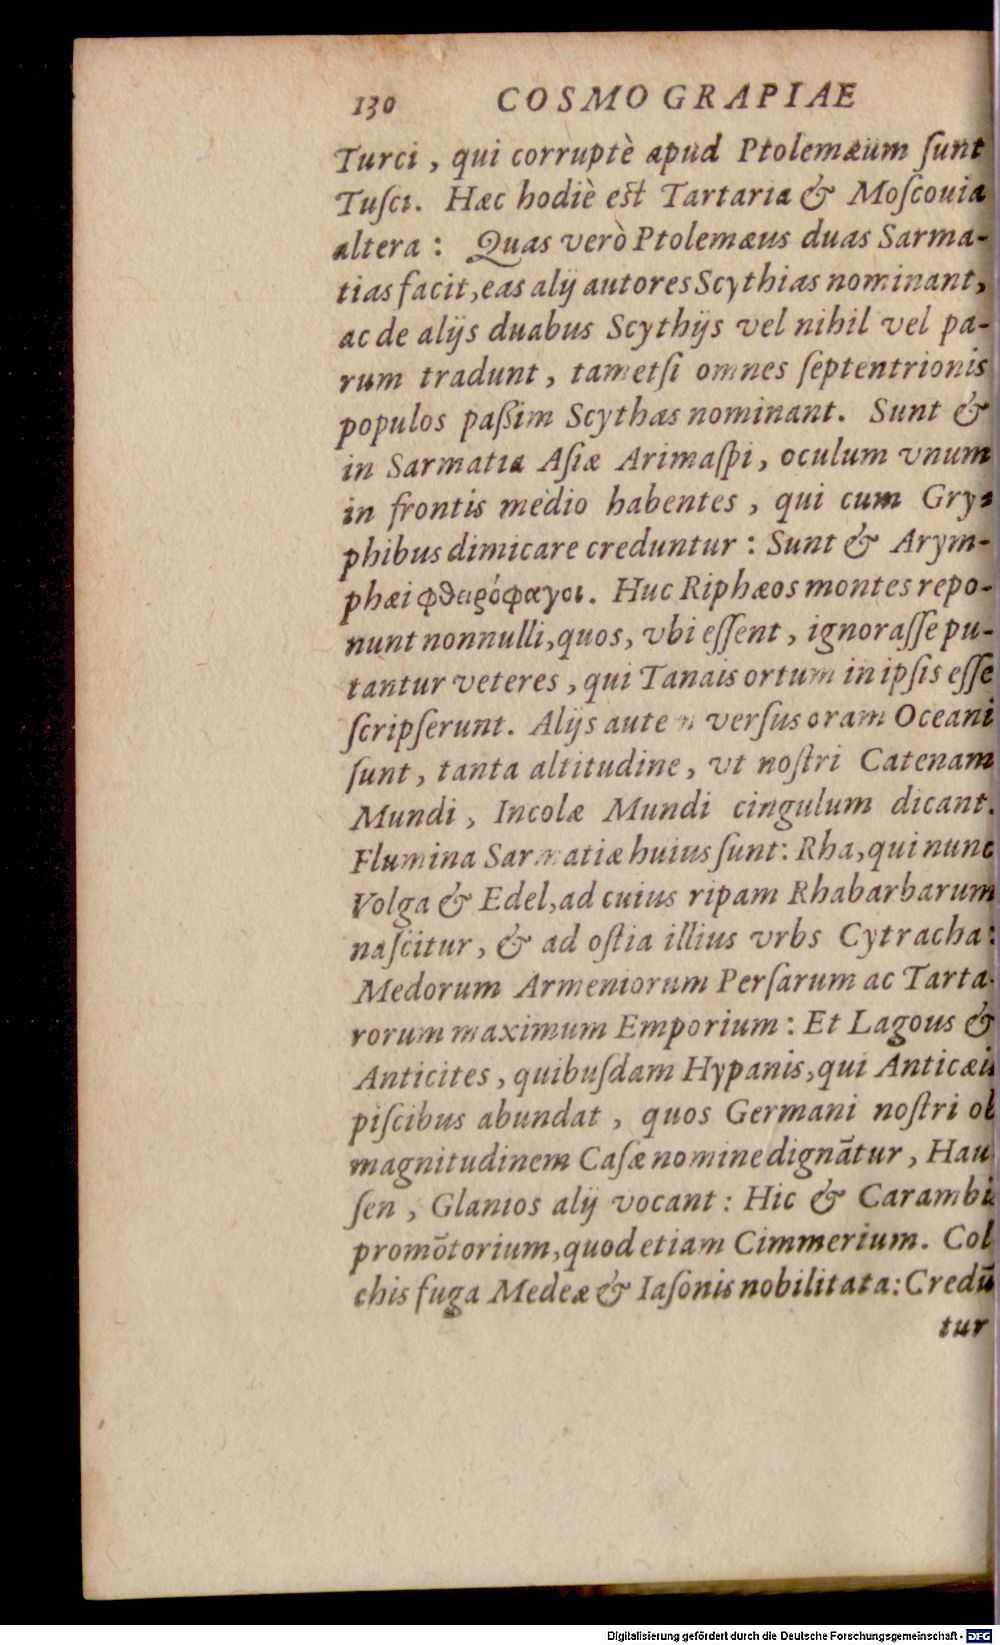 130 COSMOGRAPIAE
Turci, qui corruptè apud Ptolemæum ſunt
Tuſci. Hæc hodiè est Tartaria & Moſcouia
altera: Quas verò Ptolemæus duas Sarma-
tias facit, eas alij autores Scythias nominant,
ac de alijs duabus Scythijs vel nihil vel pa-
rum tradunt, tametſi omnes ſeptentrionis
populos paßim Scythas nominant. Sunt &
in Sarmatia Aſiæ Arimaſpi, oculum vnum
in frontis medio habentes, qui cum Gry-
phibus dimicare creduntur: Sunt & Arym-
phæi φθειρόφαγοι. Huc Riphæos montes repo-
nunt nonnulli, quos, vbi eſſent, ignoraſſe pu-
tantur veteres, qui Tanais ortum in ipſis eſſe
ſcripſerunt. Alijs autem verſus oram Oceani
ſunt, tanta altitudine, vt noſtri Catenam
Mundi, Incolæ Mundi cingulum dicant.
Flumina Sarmatiæ huius ſunt: Rha, qui nunc
Volga & Edel, ad cuius ripam Rhabarbarum
naſcitur, & ad oſtia illius vrbs Cytracha:
Medorum Armeniorum Perſarum ac Tarta-
rorum maximum Emporium: Et Lagous &
Anticites, quibuſdam Hypanis, qui Anticæis
piſcibus abundat, quos Germani noſtri ob
magnitudinem Caſæ nomine dignãtur, Hau
ſen, Glanios alij vocant: Hic & Carambi
promõtorium, quod etiam Cimmerium. Col
chis fuga Medeæ & Iaſonis nobilitata: Credũ
tur
Digitalisierung gefördert durch die Deutsche Forschungsgemeinschaft - DFG